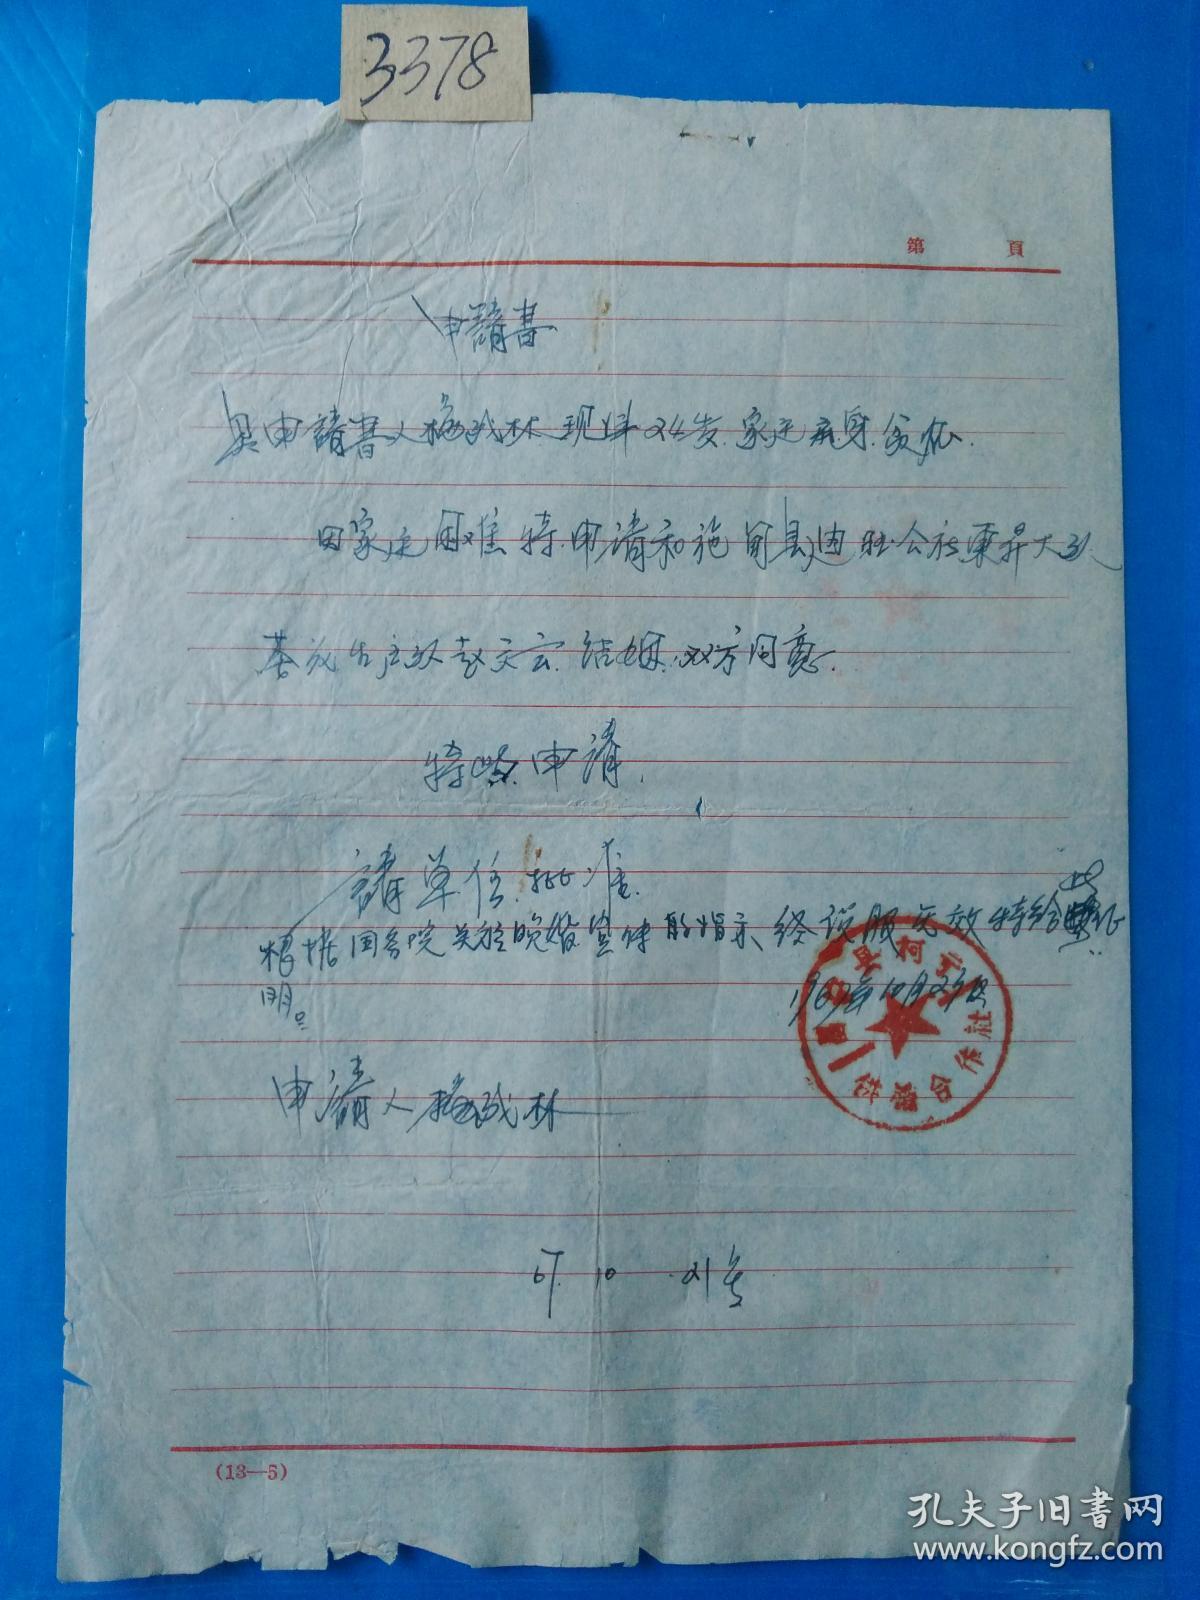 3378
第 頁
申請書
具申請書人梅成林现年24岁.家廷成身.贫农.
因家廷困难特.申请和施甸县迪 公社東昇大队
生产队赵天云.结姻.双方同意.
特此申请.
請单位批准.
根据国务院关於晚婚 的指示、经说服无效特给此证
明。
1967年10月23日
县柯
供銷合作社
申請人梅成林
67.10.21号
(13—5)
孔夫子旧书网
www.kongfz.com